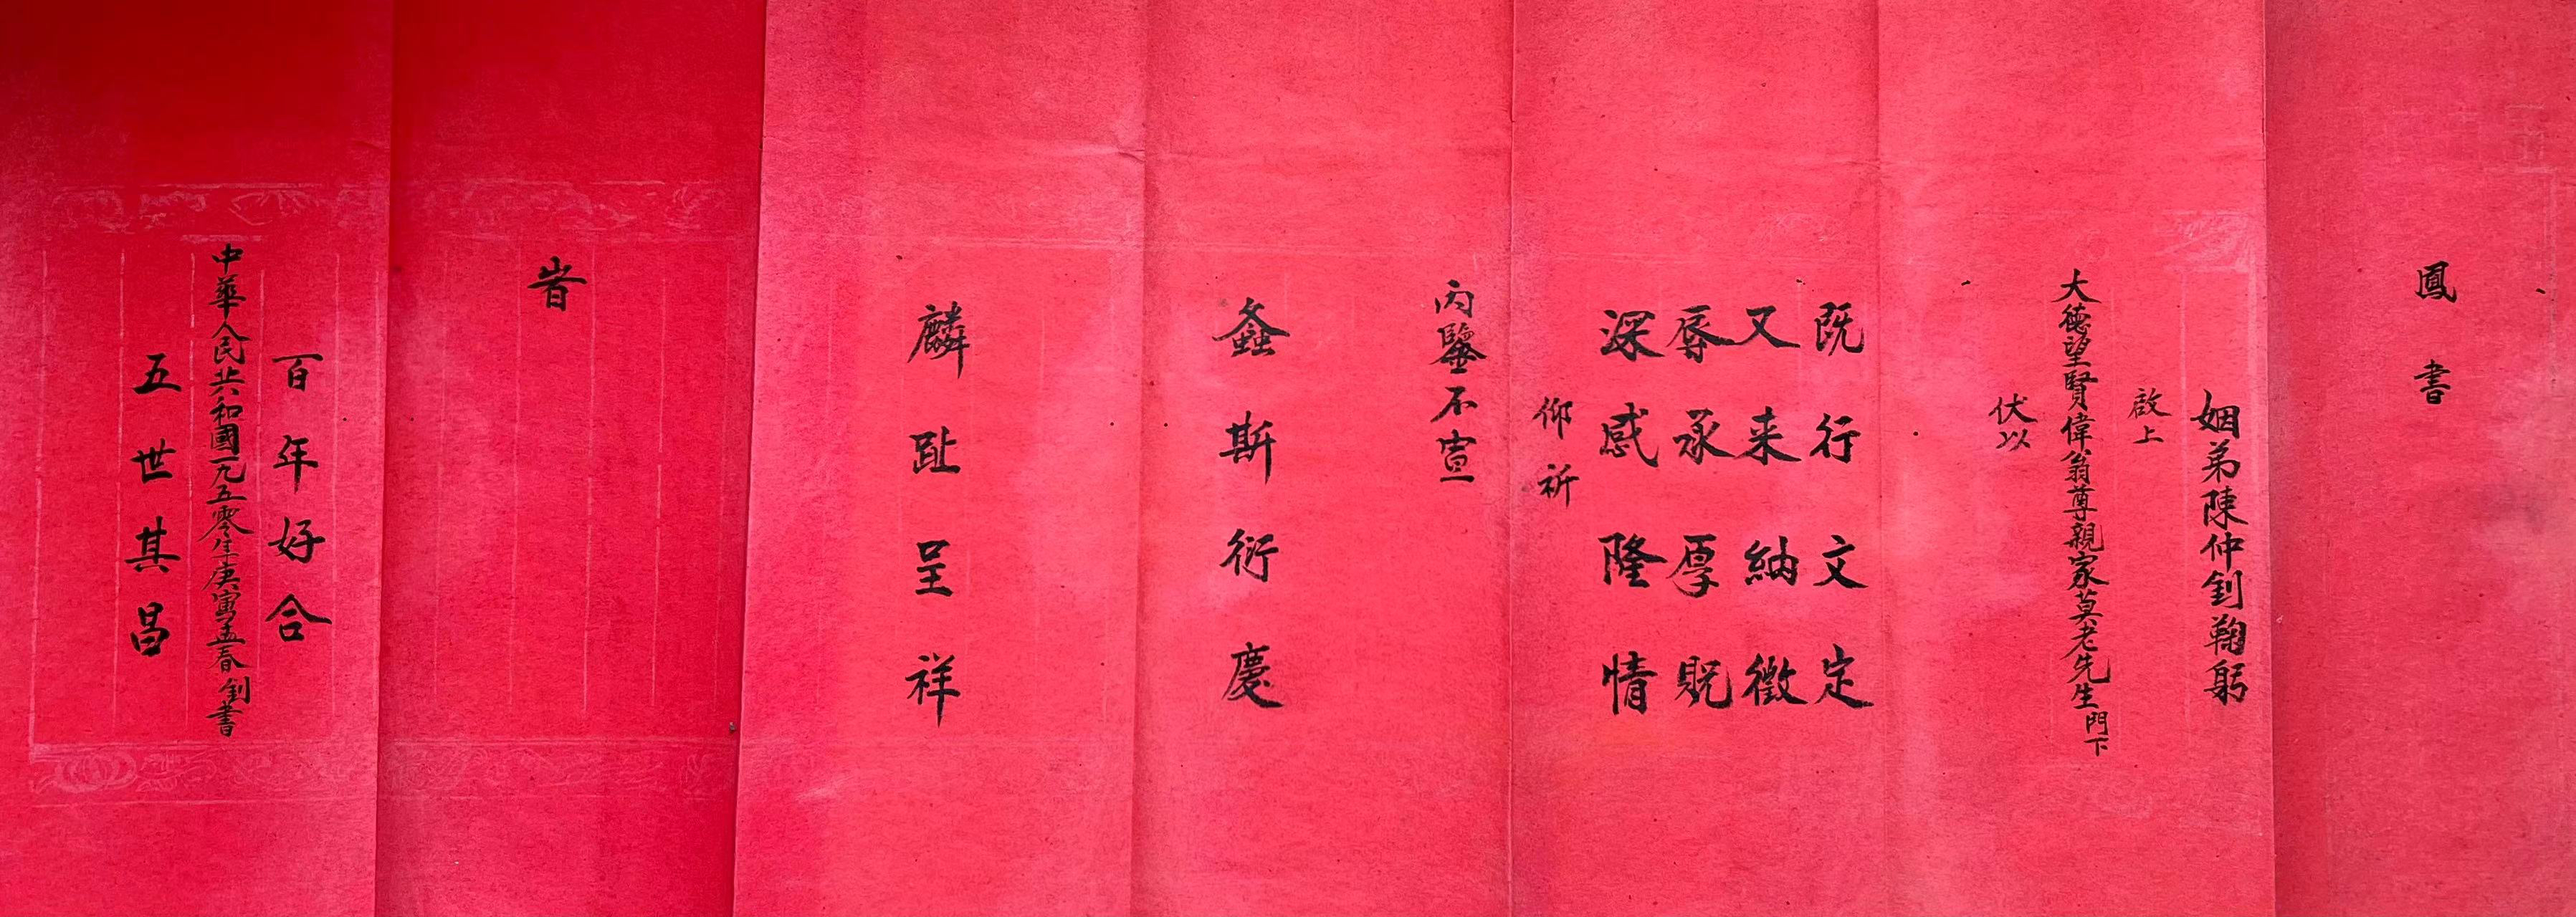 鳳書
姻弟陳仲釗鞠躬
啟上
大德望賢偉翁尊親家莫老先生門下
伏以
既行文定
又来納徵
辱承厚貺
深感隆情
仰祈
丙鑒不宣
螽斯衍慶
麟趾呈祥
旹
百年好合
中華人民共和國一九五零年庚寅孟春釗書
五世其昌